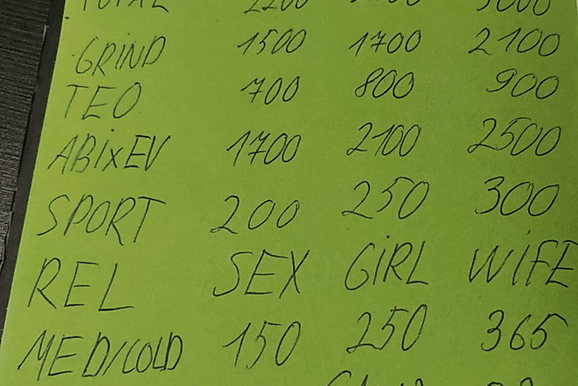 TOTAL 2200 5000
GRIND 1500 1700 2100
TEO 700 800 900
ABixEV 1700 2100 2500
SPORT 200 250 300
REL SEX GiRL WiFE
MED/COLD 150 250 365